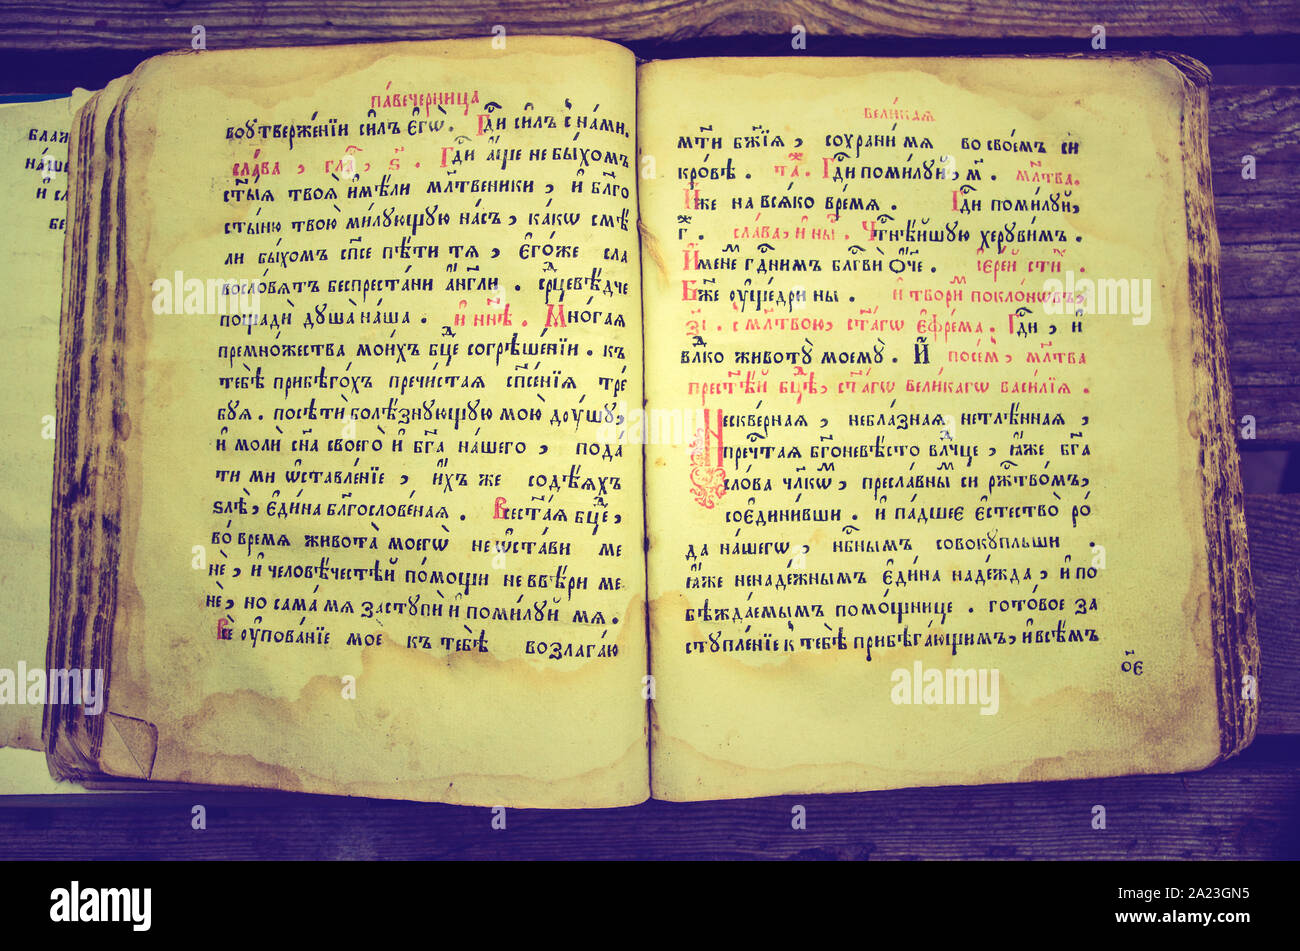 блаж
наше
па́вечерница
воутверже́нїи си́лъ є҆гѡ̀. гд҇и си́лъ с на́ми.
сла́ва, гла҇, ѕ҃. гд҇и а҆́ще не бы́хомъ
ст҃ы́ѧ твоѧ̀ и҆мѣ́ли мл҃твеники, и҆ бл҃го
сты́ню твою̀ ми́лующую на́съ, ка́кѡ смѣ́
ли бы́хомъ сп҃се пѣ́ти тѧ, є҆го́же сла
восло́вѧтъ беспреста́ни а҆́нгли. срцевѣ́дче
пощадѝ дꙋ́ша на́ша. и҆ нн҃ѣ. Мно́гаѧ
премно́жества мои́хъ бц҃е согрѣше́нїи. къ
тебѣ̀ прибѣго́хъ пречи́стаѧ сп҃се́нїѧ тре́
буѧ. посѣтѝ болѣ́знующую мою̀ дꙋ́шу,
и҆ молѝ сн҃а своего̀ и҆ бг҃а на́шего, пода́
ти ми ѡ҆ставле́нїе, и҆́хъ же содѣ́ѧхъ
ѕлѣ̀, є҆ди́на благослове́наѧ. Всест҃а́ѧ бц҃е,
во́ время живота̀ моегѡ̀ не ѡ҆ста́ви ме
нѐ, и҆ человѣ́честѣй по́мощи не ввѣ́ри ме
нѐ, но сама́ мѧ заступѝ и҆ поми́луй мѧ.
Всѐ ᲂу҆пова́нїе мое къ тебѣ̀ возлага́ю
вели́каѧ
мт҃и бж҃їѧ, сохрани́ мѧ во свое́мъ си
кро́вѣ. та҇. Гд҇и поми́луй, м҃. мл҃тва.
И҆́же на всѧ́ко вре́мѧ. Гд҇и поми́луй,
г҃. сла́ва, и҆ ны҃. Чт҇нѣ́йшую херꙋви́мъ.
И҆́мене гд҇нимъ благ҇вѝ о҆́ч҇е. і҆ере́й ст҃и҇.
Бж҃е ᲂу҆ще́дри ны. и҆ твори́м поклѡ́нѡвъ,
з҃і. с мл҃твою, ст҃а́гѡ є҆фре́ма. Гд҇и, и҆
влд҇ко животꙋ̀ моемꙋ̀. И҆ посе́м, мл҃тва
прест҃ѣ́й бц҃ѣ, ст҃а́гѡ вели́кагѡ васи́лїѧ.
Нескве́рнаѧ, небла́знаѧ нетлѣ́ннаѧ,
преч҇таѧ бг҃оневѣ́сто влч҇це, ꙗ҆́же бг҃а
сло́ва чл҃кѡм, пресла́вны си рж҇тво́мъ,
соє҆дини́вши. и҆ па́дшеє є҆стество̀ ро́
да на́шегѡ, нб҇нымъ совокупльши.
ꙗ҆́же ненаде́жнымъ є҆ди́на наде́жда, и҆ по
бѣжда́емымъ помо́щнице. гото́вое за
ступле́нїе к тебѣ̀ прибѣга́ющимъ, и҆ всѣ́мъ
ое҃
alamy
Image ID: 2A23GN5
www.alamy.com